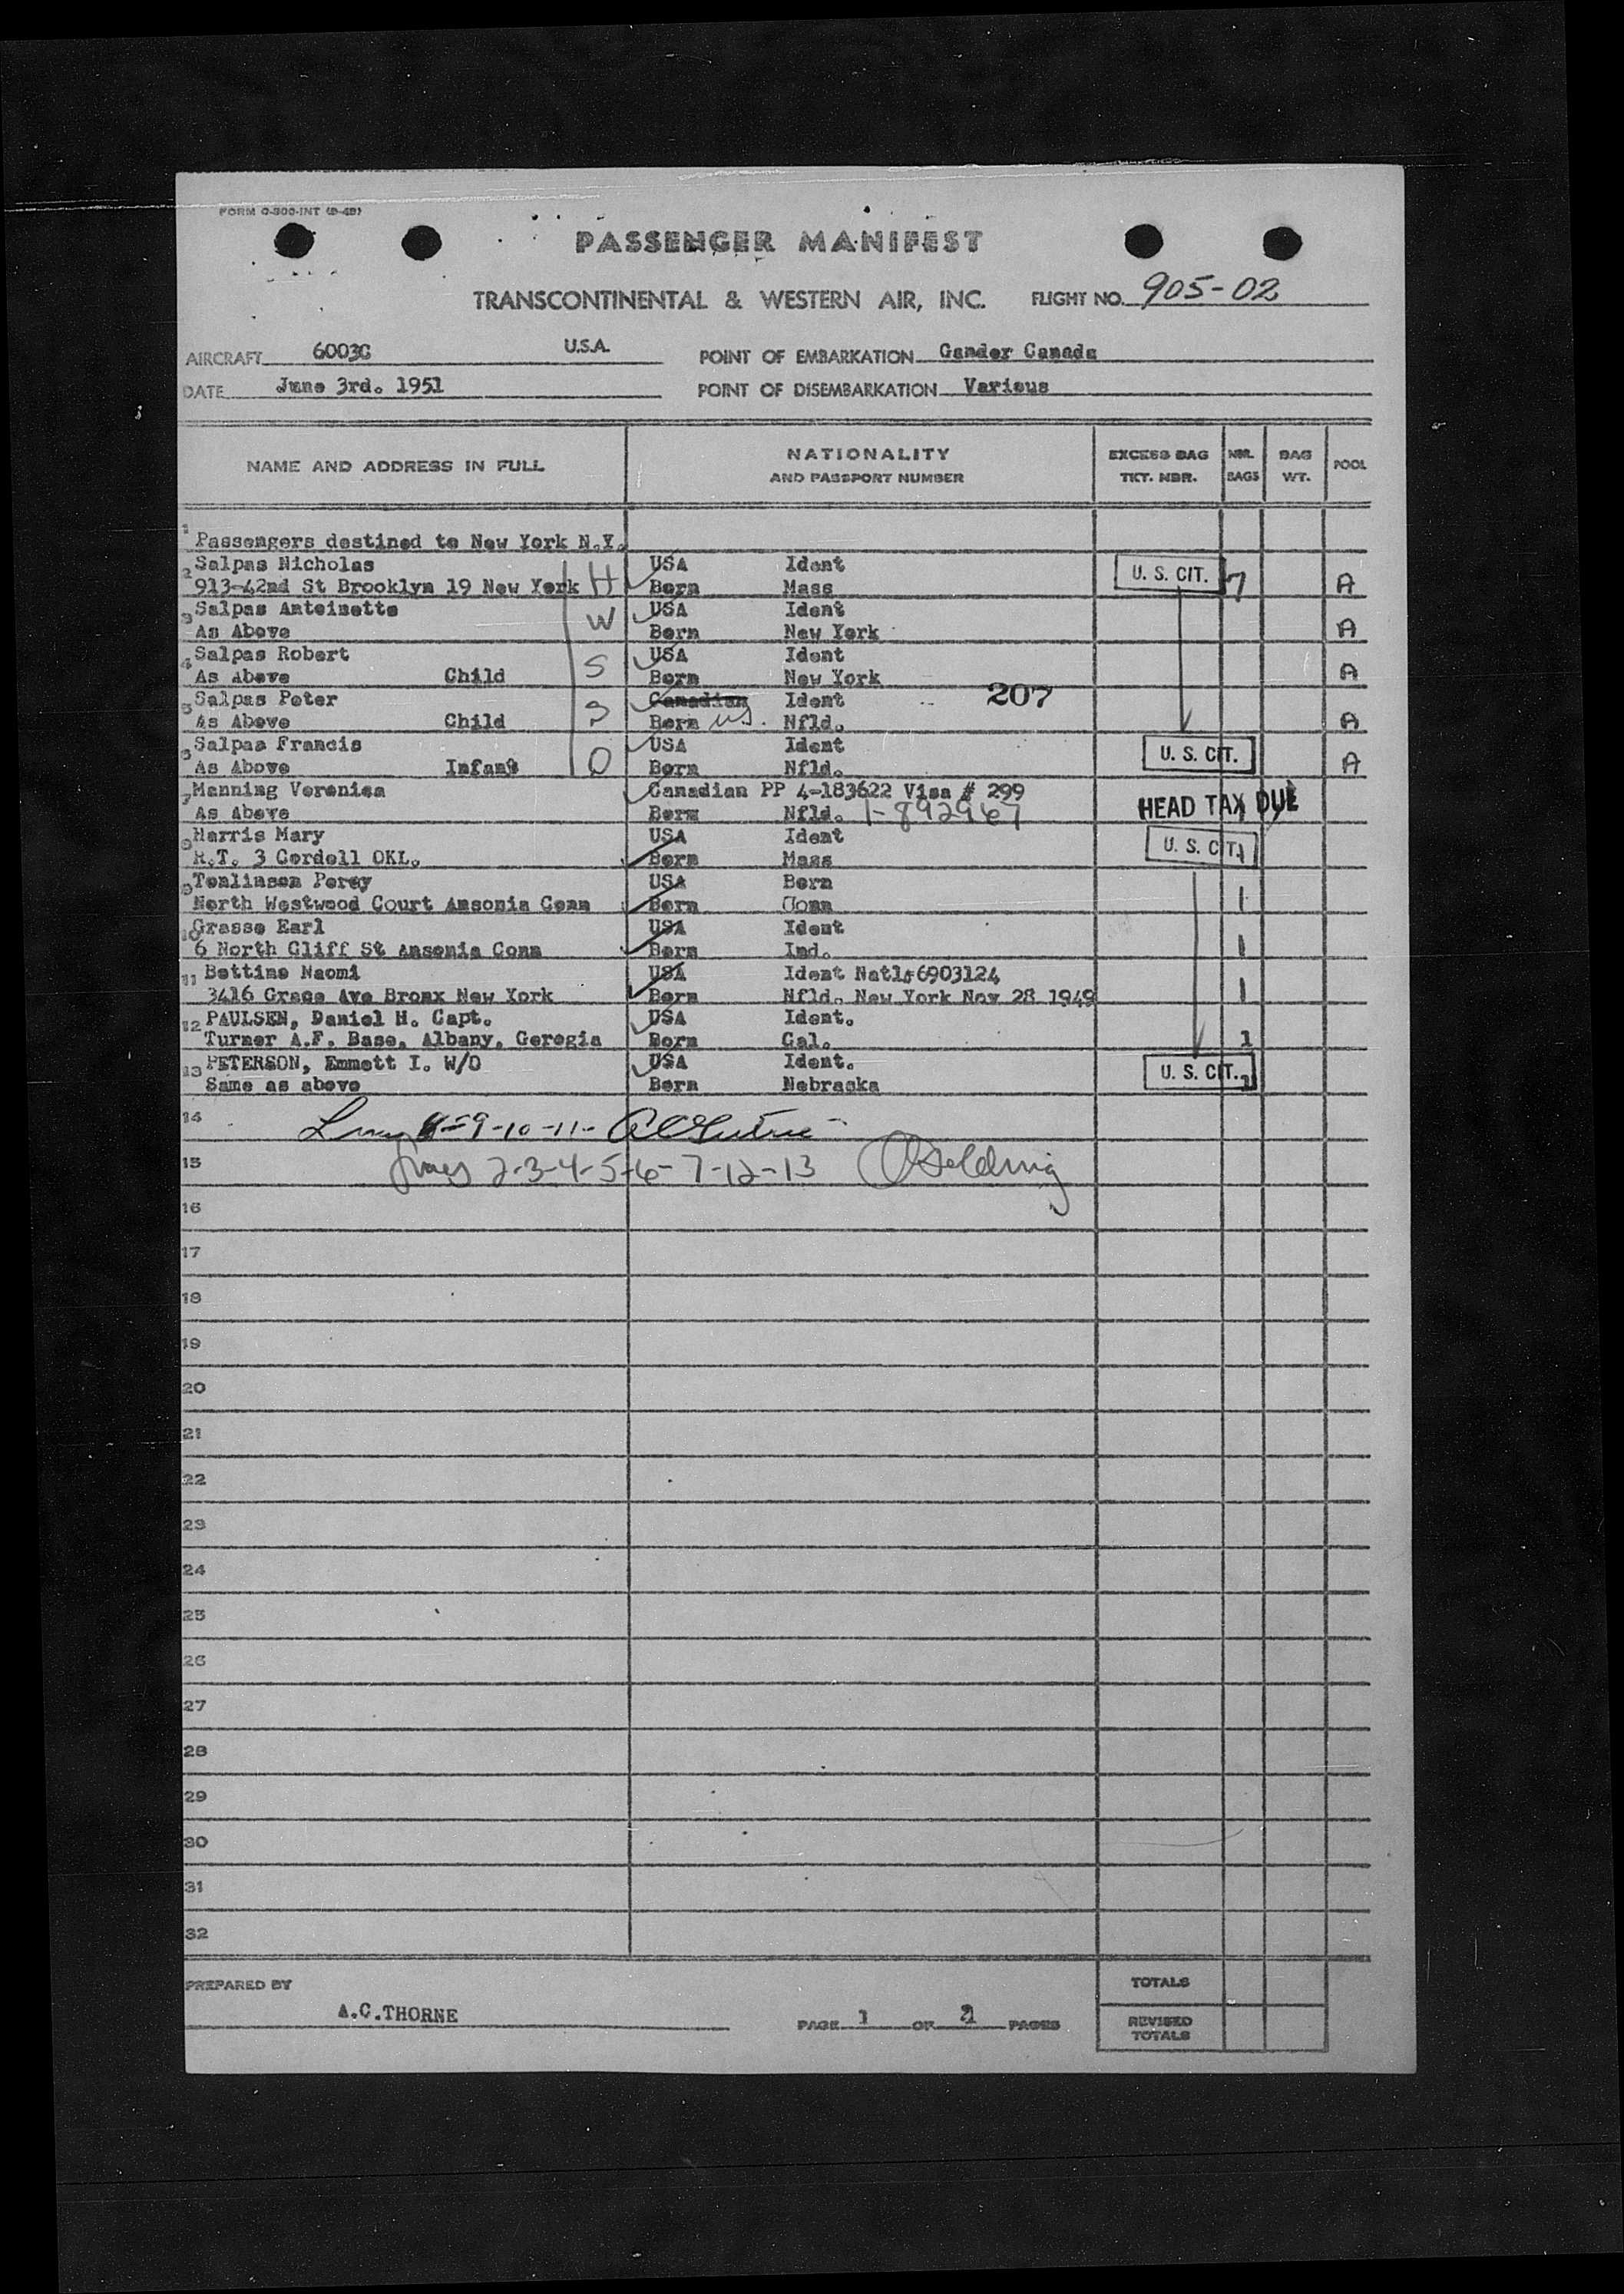 FORM O-300-INT (9-49)
PASSENGER MANIFEST
TRANSCONTINENTAL & WESTERN AIR, INC. FLIGHT NO. 905-02
AIRCRAFT 6003C U.S.A. POINT OF EMBARKATION Gander Canada
DATE June 3rd. 1951 POINT OF DISEMBARKATION Various
NAME AND ADDRESS IN FULL NATIONALITY AND PASSPORT NUMBER EXCESS BAG TKT. NBR. NBR. BAGS BAG WT. POOL
1 Passengers destined to New York N.Y.
2 Salpas Nicholas USA Ident U. S. CIT.
913-42nd St Brooklyn 19 New York H Born Mass 7 A
3 Salpas Antoinette W USA Ident
As Above Born New York A
4 Salpas Robert S USA Ident
As Above Child Born New York A
5 Salpas Peter S Canadian Ident 207
As Above Child Born U.S. Nfld. A
6 Salpas Francis USA Ident U. S. CIT.
As Above Infant D Born Nfld. A
7 Manning Veronica Canadian PP 4-183622 Visa # 299
As Above Born Nfld. 1-892967 HEAD TAX DUE
8 Harris Mary USA Ident U. S. CIT. 1
R.T. 3 Cordell OKL. Born Mass
9 Tomlinson Percy USA Born
North Westwood Court Ansonia Conn Born Conn 1
10 Grasso Earl USA Ident
6 North Cliff St Ansonia Conn Born Ind. 1
11 Bettine Naomi USA Ident Natl#6903124
3416 Grace Ave Bronx New York Born Nfld. New York Nov 28 1949 1
12 PAULSEN, Daniel H. Capt. USA Ident.
Turner A.F. Base, Albany, Geregia Born Cal. 1
13 PETERSON, Emmett I. W/O USA Ident. U. S. CIT. 1
Same as above Born Nebraska
14 Lines 8-9-10-11-
15 Lines 2-3-4-5-6-7-12-13
16
17
18
19
20
21
22
23
24
25
26
27
28
29
30
31
32
PREPARED BY A.C.THORNE PAGE 1 OF 2 PAGES
TOTALS
REVISED TOTALS